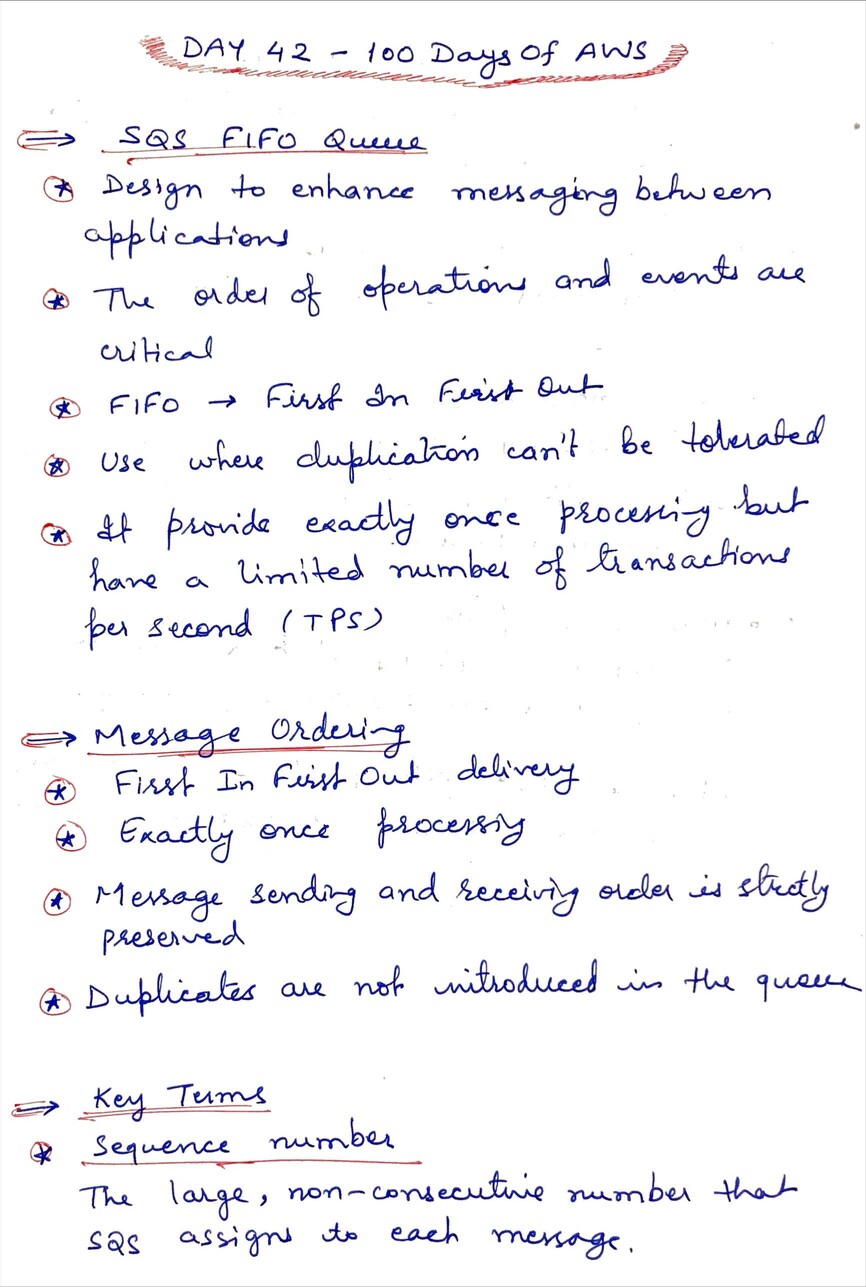 DAY 42 - 100 Days Of AWS
⇒ SQS FIFO Queue
* Design to enhance messaging between
applications
* The order of operations and events are
critical
* FIFO → First In First Out
* Use where duplication can't be tolerated
* It provide exactly once processing but
have a limited number of transactions
per second (TPS)
⇒ Message Ordering
* First In First Out delivery
* Exactly once processing
* Message sending and receiving order is strictly
preserved
* Duplicates are not introduced in the queue
⇒ Key Terms
* Sequence number
The large, non-consecutive number that
SQS assigns to each message.